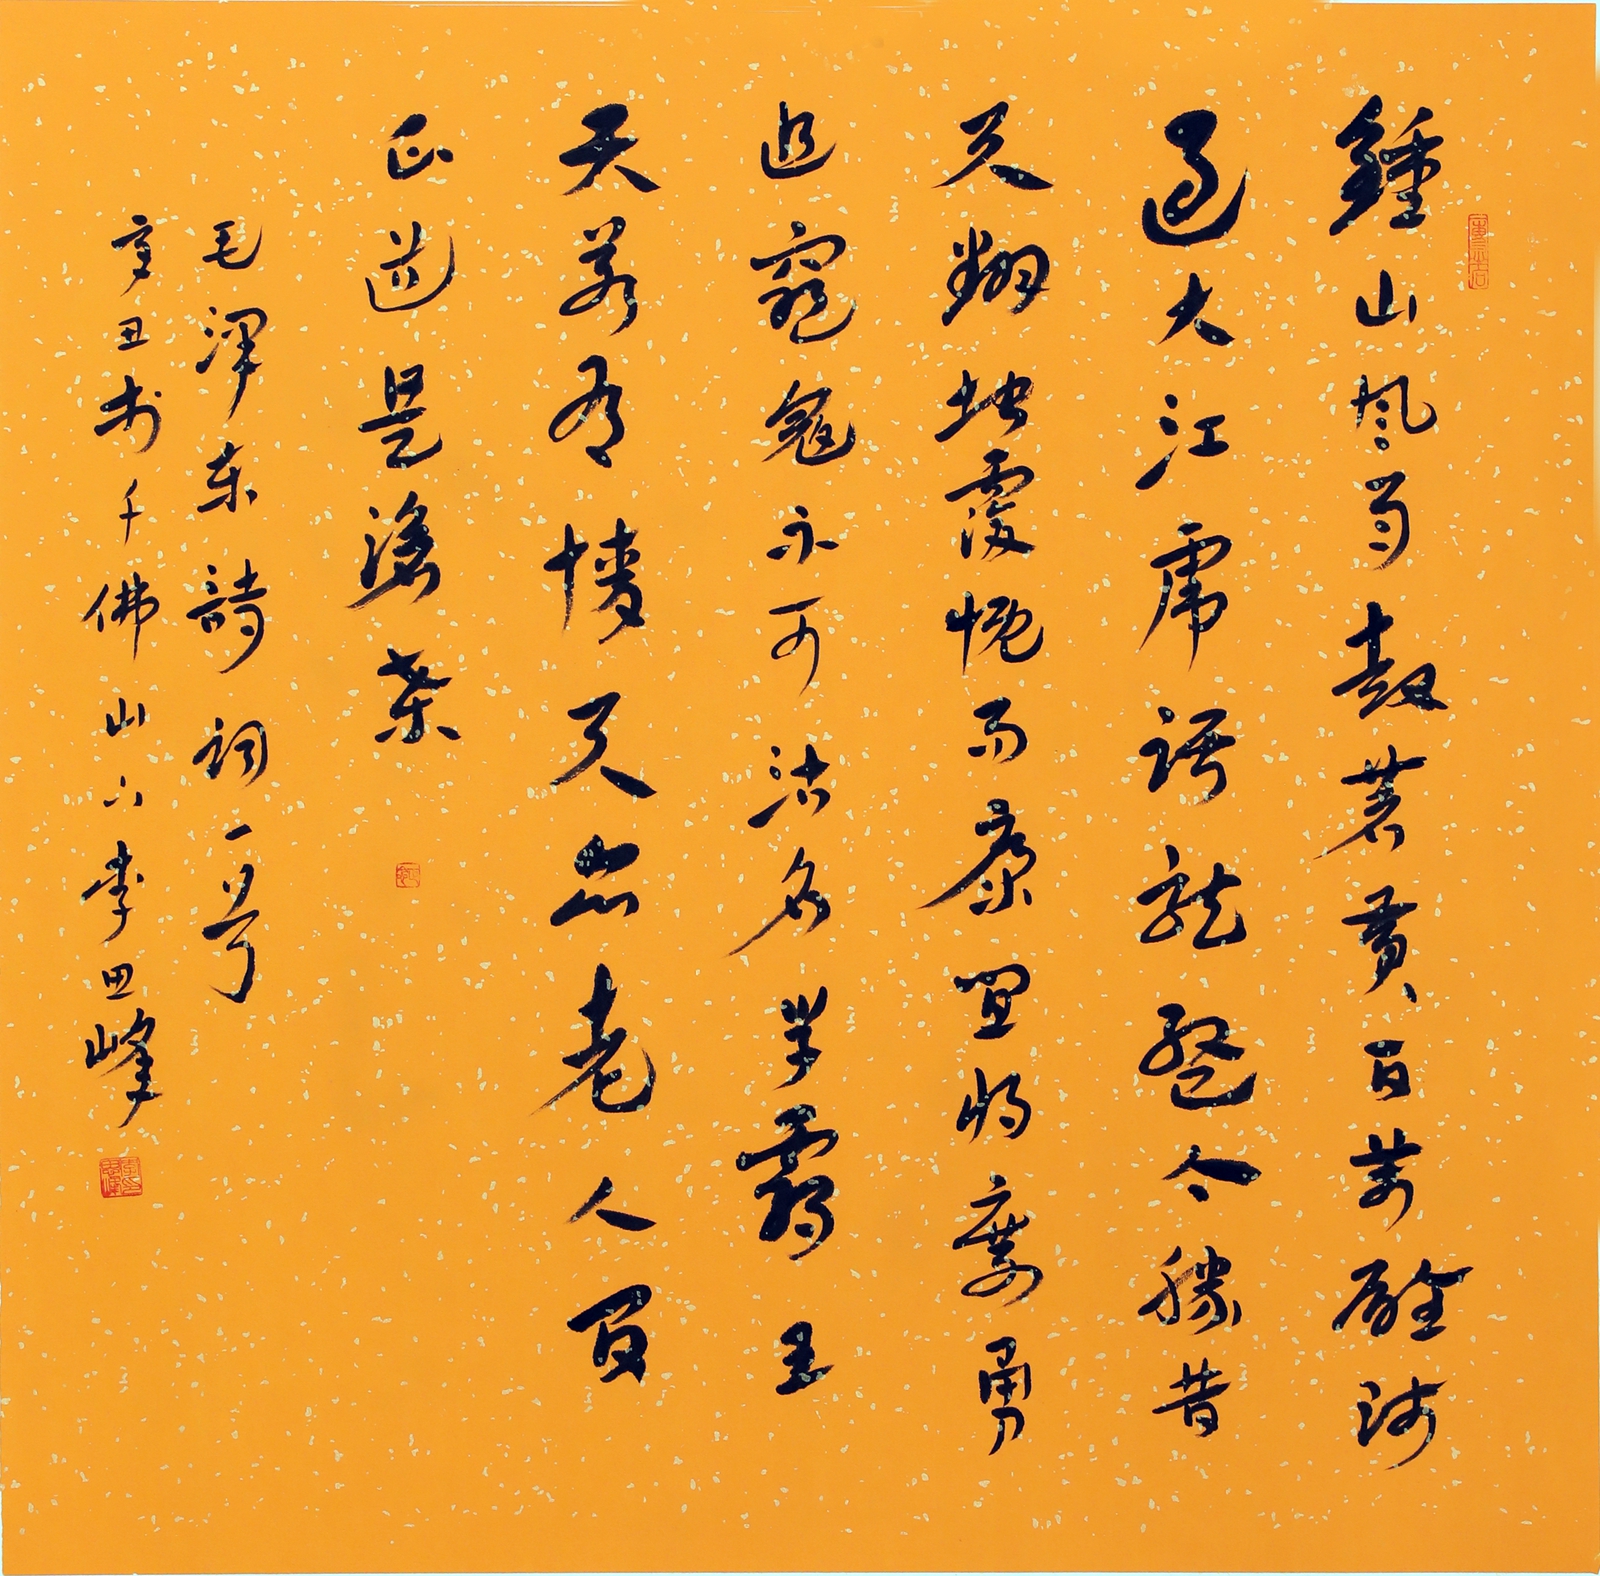 鍾山风雨起蒼黃百萬雄師
過大江虎踞龍盤今勝昔
天翻地覆慨而慷宜將剩勇
追窮寇不可沽名學霸王
天若有情天亦老人間
正道是滄桑
毛澤东詩詞一首
辛丑於千佛山下李田峰